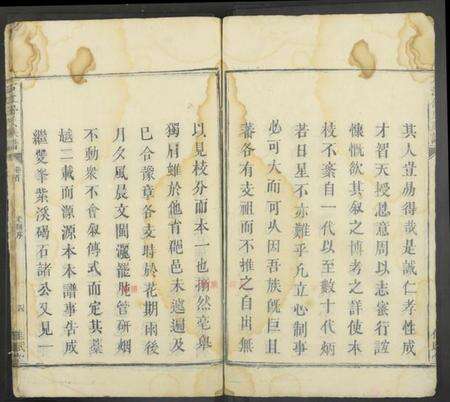 其人豈易得哉是誠仁孝性成
才智天授思意周以志密行誼
慷慨欲其叙之博考之詳使本
枝不紊自一代以至數十代炳
若日星不亦難乎凡立心制事
必可大而可久因吾族既巨且
蕃各有支祖而不推之自出無
以見枝分而本一也揃然毫與
獨眉雖於他省他邑未遑遍及
已合豫章各支時於花期雨後
月久風晨文闈灑灑腕管硏烟
不動衆不會叙傳式而定其藁
越二載而源源本本譜事告成
繼雙峯紫溪碣石諸公又見一
卷首
六